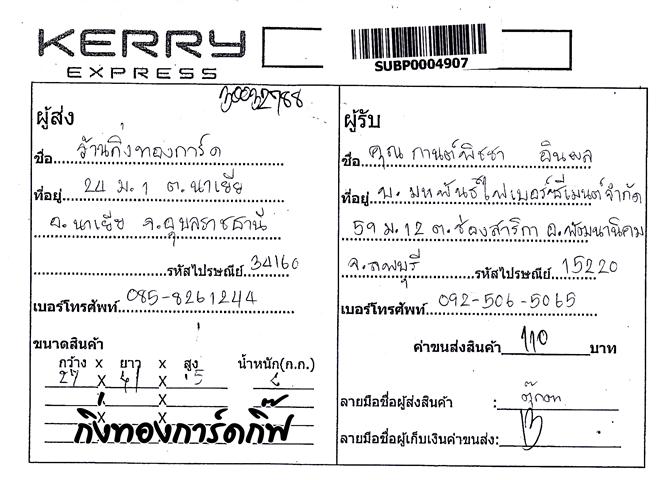 KERRY
EXPRESS
SUBP0004907
30032788
ผู้ส่ง
ชื่อ ร้านกิ่งทองการ์ด
ที่อยู่ 24 ม.1 ต.นาเยีย
อ.นาเยีย จ.อุบลราชธานี
รหัสไปรษณีย์ 34160
เบอร์โทรศัพท์ 085-8261244
ขนาดสินค้า
กว้าง x ยาว x สูง น้ำหนัก(ก.ก.)
27 X 41 X 5
X X
X X
กิ่งทองการ์ดกิ๊ฟ
ผู้รับ
ชื่อ คุณ กานต์พิชชา อินผล
ที่อยู่ บ. มหพันธ์ไฟเบอร์ซีเมนต์จำกัด
59 ม.12 ต.ช่องสาริกา อ.พัฒนานิคม
จ.ลพบุรี รหัสไปรษณีย์ 15220
เบอร์โทรศัพท์ 092-506-5065
ค่าขนส่งสินค้า 110 บาท
ลายมือชื่อผู้ส่งสินค้า :
ลายมือชื่อผู้เก็บเงินค่าขนส่ง: